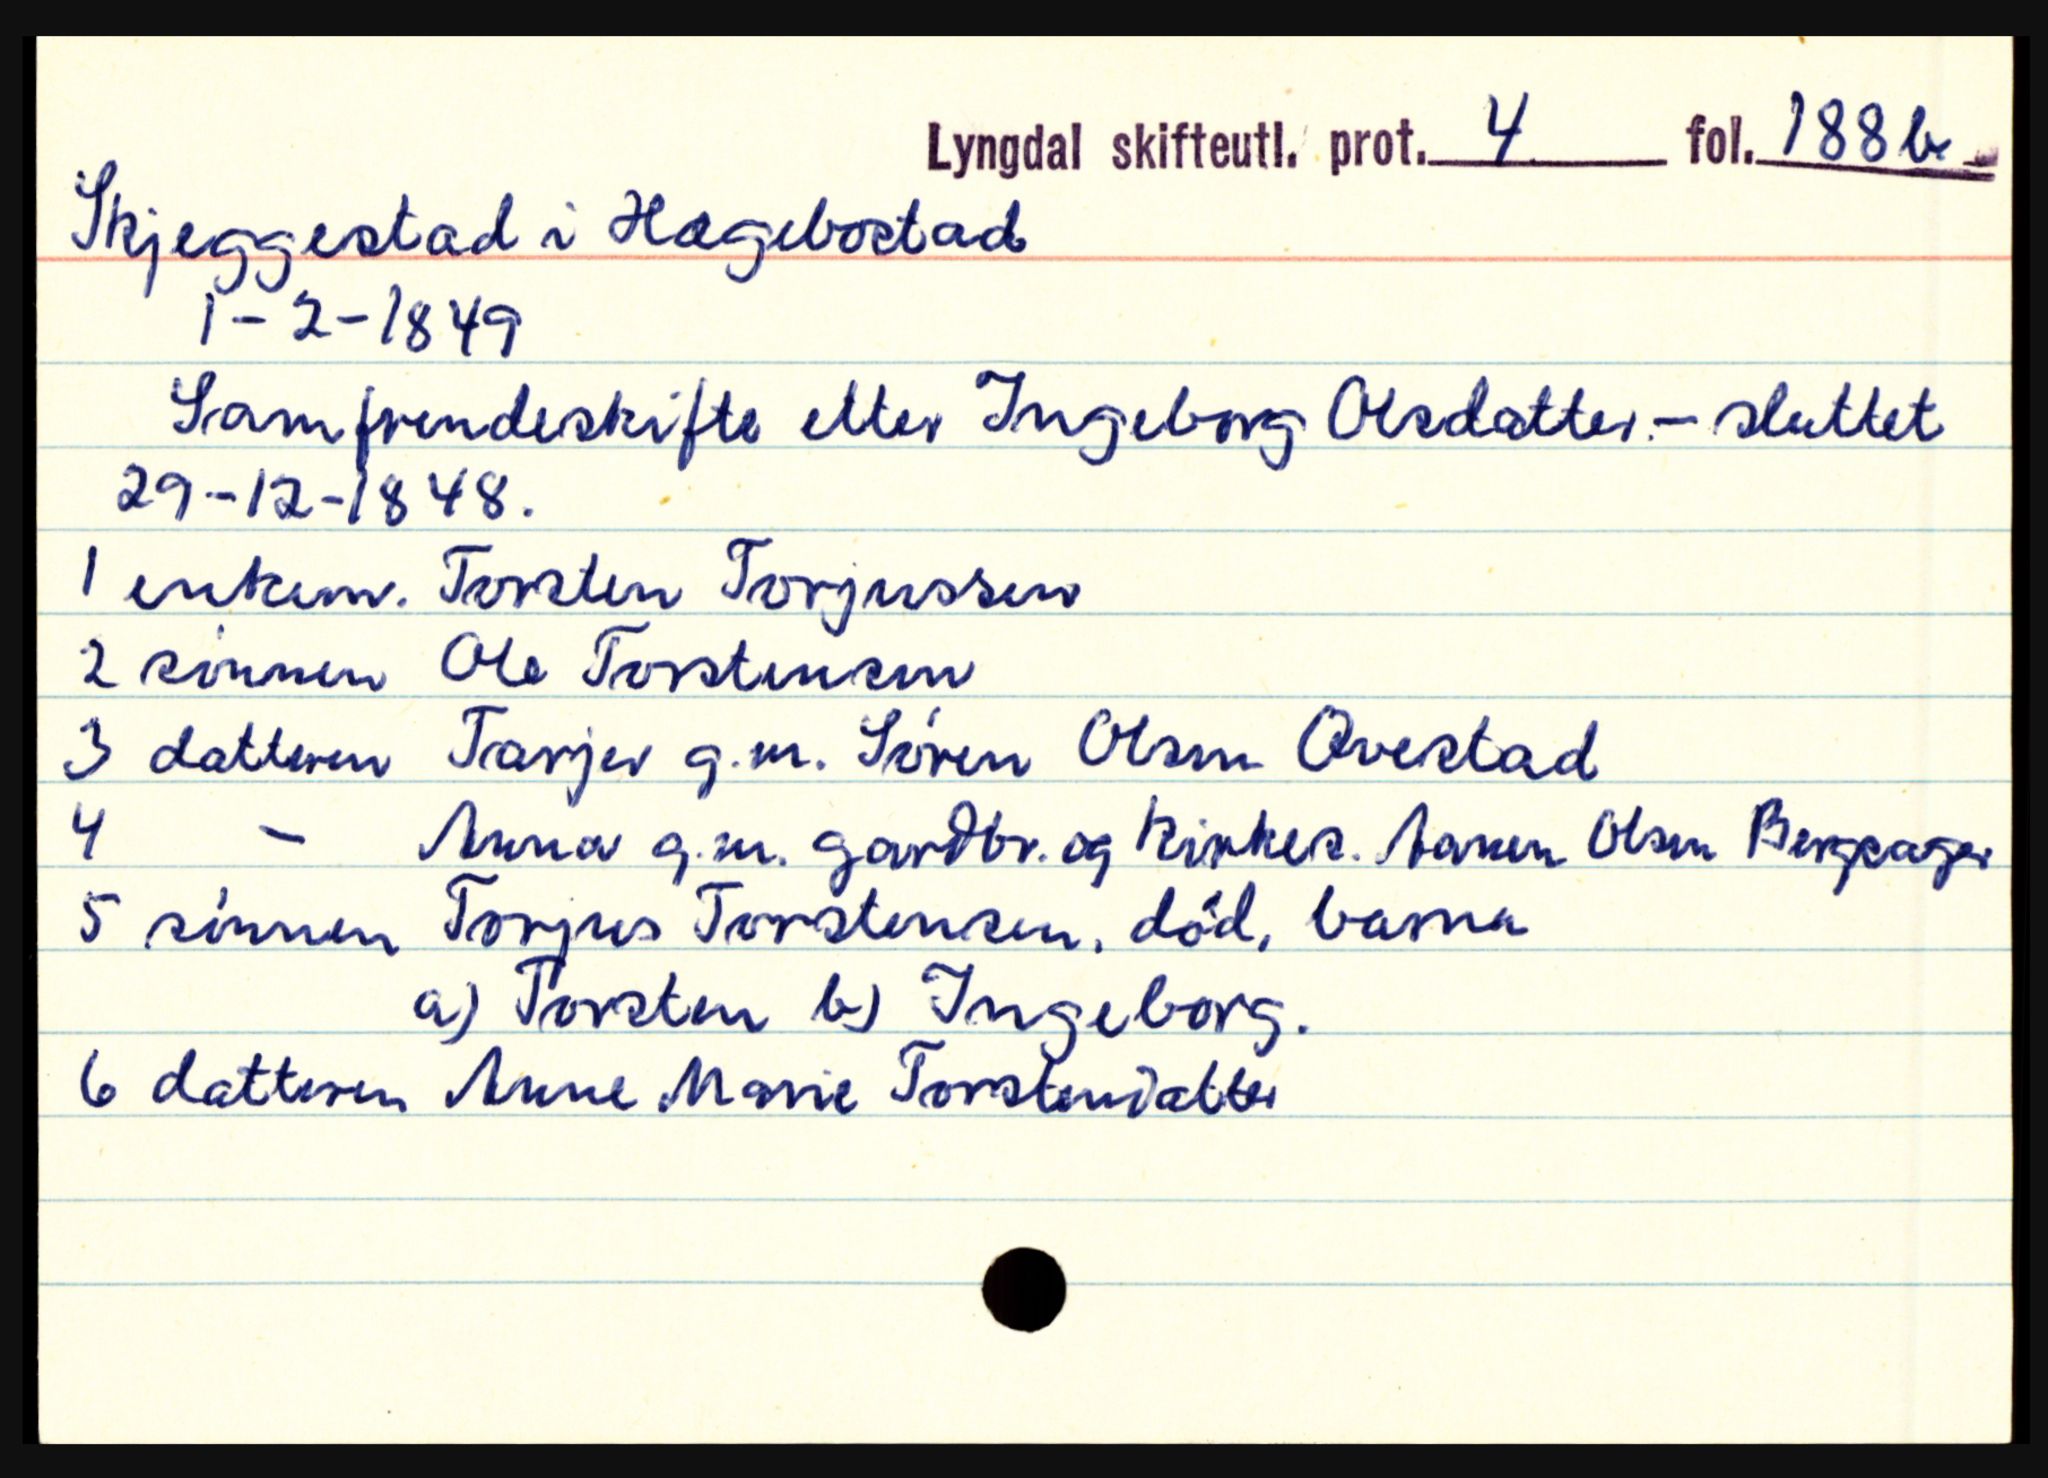 Lyngdal skifteutl. prot. 4 fol. 188b.
Skjeggestad i Hægebostad
1-2-1849
Samfrendeskifte etter Ingeborg Olsdatter. - sluttet
29-12-1848.
1 enkem. Torsten Torjussen
2 sönnen Ole Torstensen
3 datteren Tarjer g.m. Sören Olsen Øvestad
4 - Anna g.m. gardbr. og kirkes. Aanen Olsen Bergsager
5 sönnen Torjus Torstensen, död, barna
a) Torsten b) Ingeborg.
6 datteren Anne Marie Torstendatter